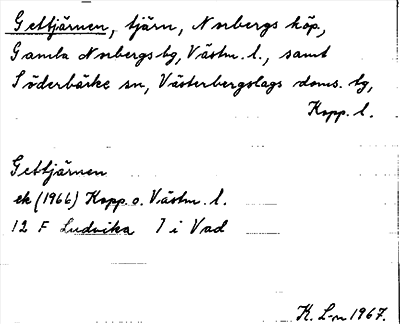 Gettjärnen, tjärn, Norbergs köp,
Gamla Norbergs bg, Västm. l., samt
Söderbärke sn, Västerbergslags doms. tg,
Kopp. l.
Gettjärnen
ek (1966) Kopp. o. Västm. l.
12 F Ludvika 7 i Vad
K. L-n 1967.